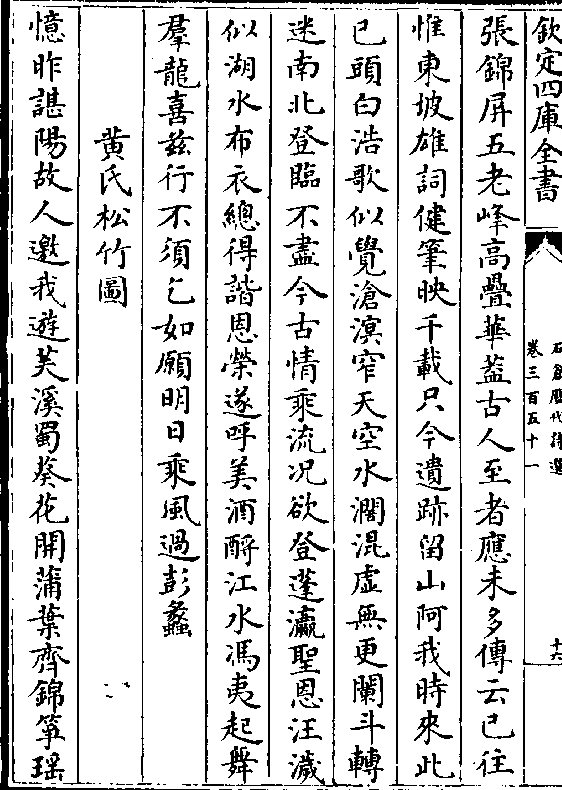 欽定四庫全書
石倉歷代詩選
卷三百五十一
十六
張錦屏五老峰高疊華葢古人至者應未多傳云已往
惟東坡雄詞健筆映千載只今遺跡留山阿我時來此
已頭白浩歌似覺滄溟窄天空水濶混虛無更闌斗轉
迷南北登臨不盡今古情乘流况欲登蓬瀛聖恩汪濊
似湖水布衣總得諧恩榮遂呼美酒酹江水馮夷起舞
羣龍喜兹行不須乞如願明日乘風過彭蠡
黄氏松竹圖
憶昨諶陽故人邀我遊芙溪蜀葵花開蒲葉齊錦箏瑶